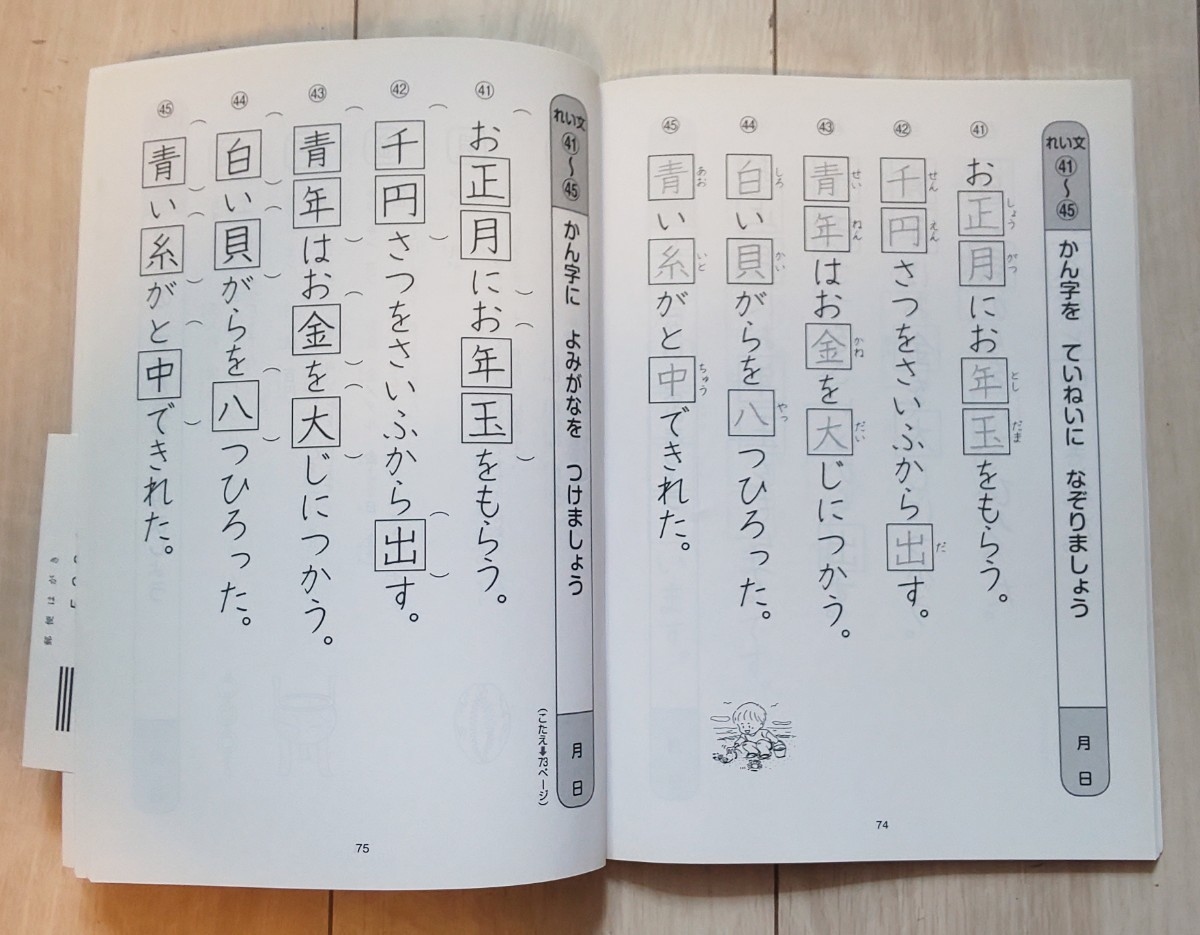 れい文 ㊶〜㊺ かん字を ていねいに なぞりましょう 月 日
㊶ お正月にお年玉をもらう。
しょう がつ とし だま
㊷ 千円さつをさいふから出す。
せん えん だ
㊸ 青年はお金を大じにつかう。
せい ねん かね だい
㊹ 白い貝がらを八つひろった。
しろ かい やっ
㊺ 青い糸がと中できれた。
あお いと ちゅう
74
れい文 ㊶〜㊺ かん字に よみがなを つけましょう 月 日
(こたえ➡73ページ)
㊶ お正月にお年玉をもらう。
㊷ 千円さつをさいふから出す。
㊸ 青年はお金を大じにつかう。
㊹ 白い貝がらを八つひろった。
㊺ 青い糸がと中できれた。
75
郵便はがき